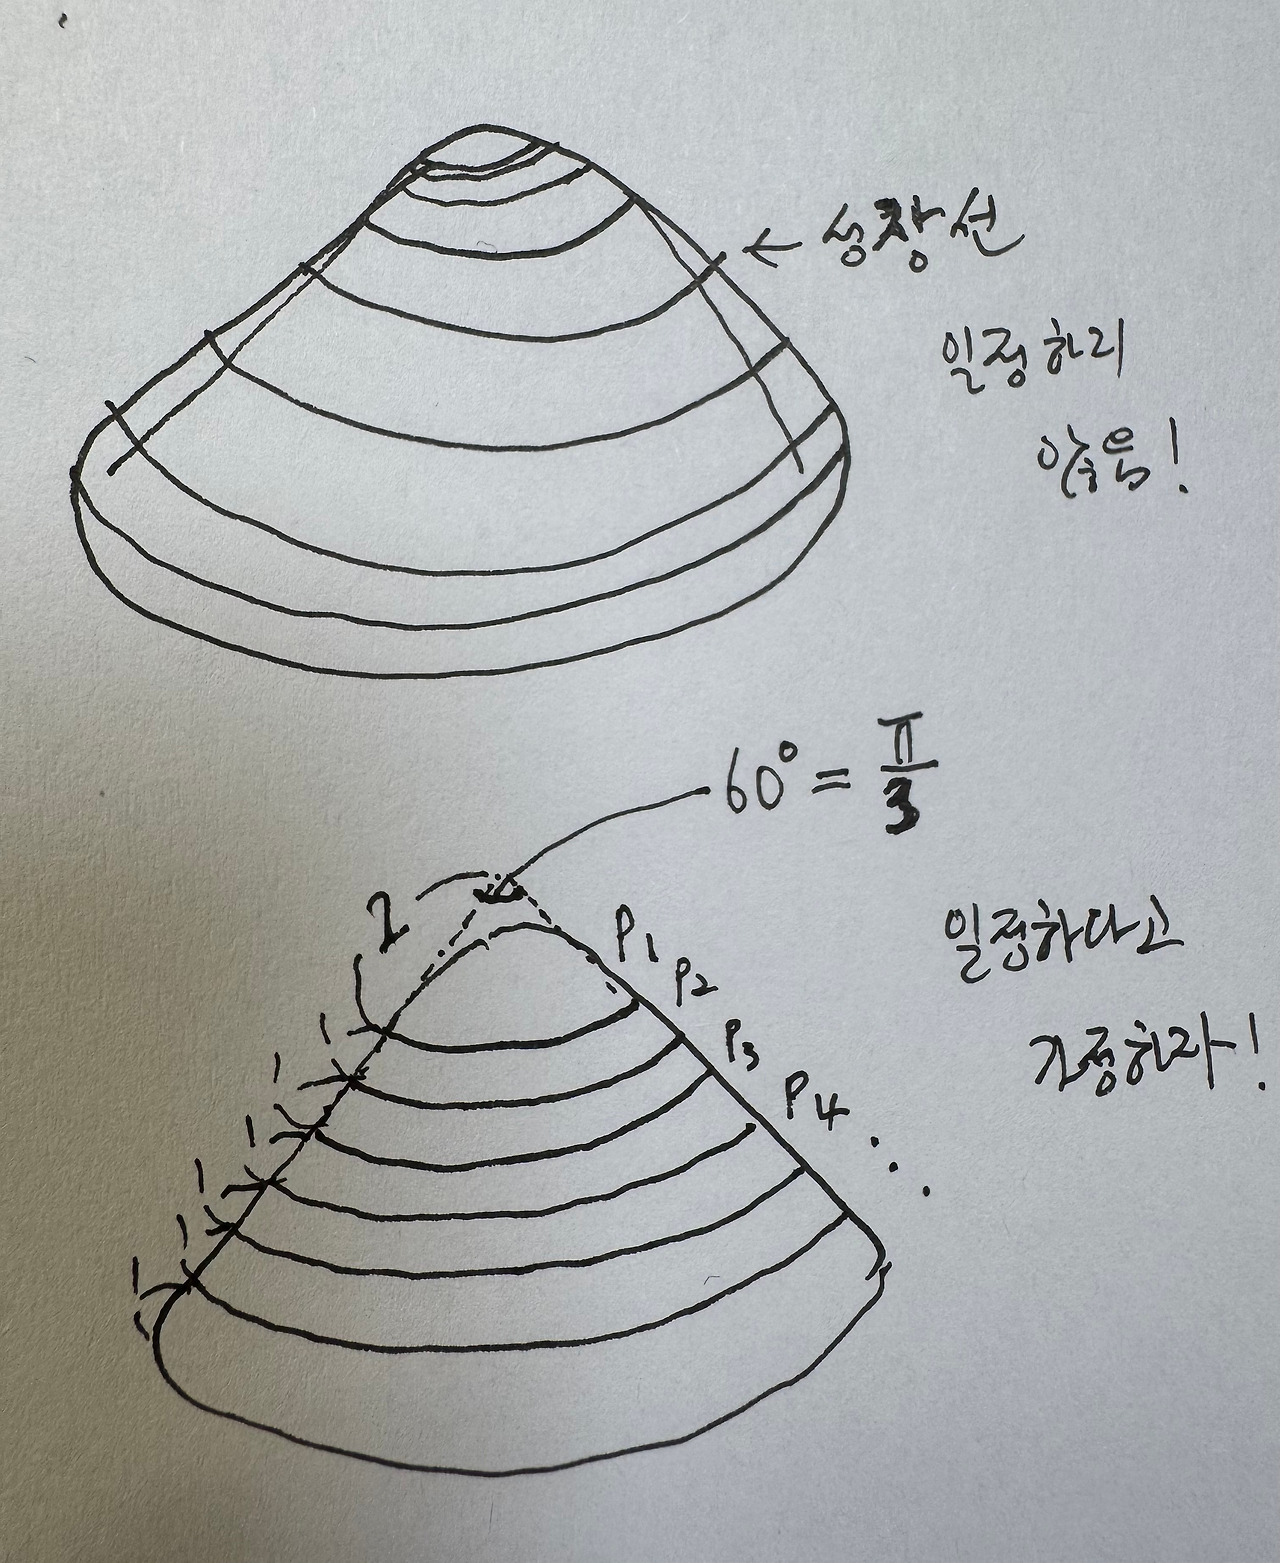 ← 성장선
일정하지
않음!
60° = π/3
2
일정하다고
가정하자!
P1
P2
P3
P4
...
1
1
1
1
1
1